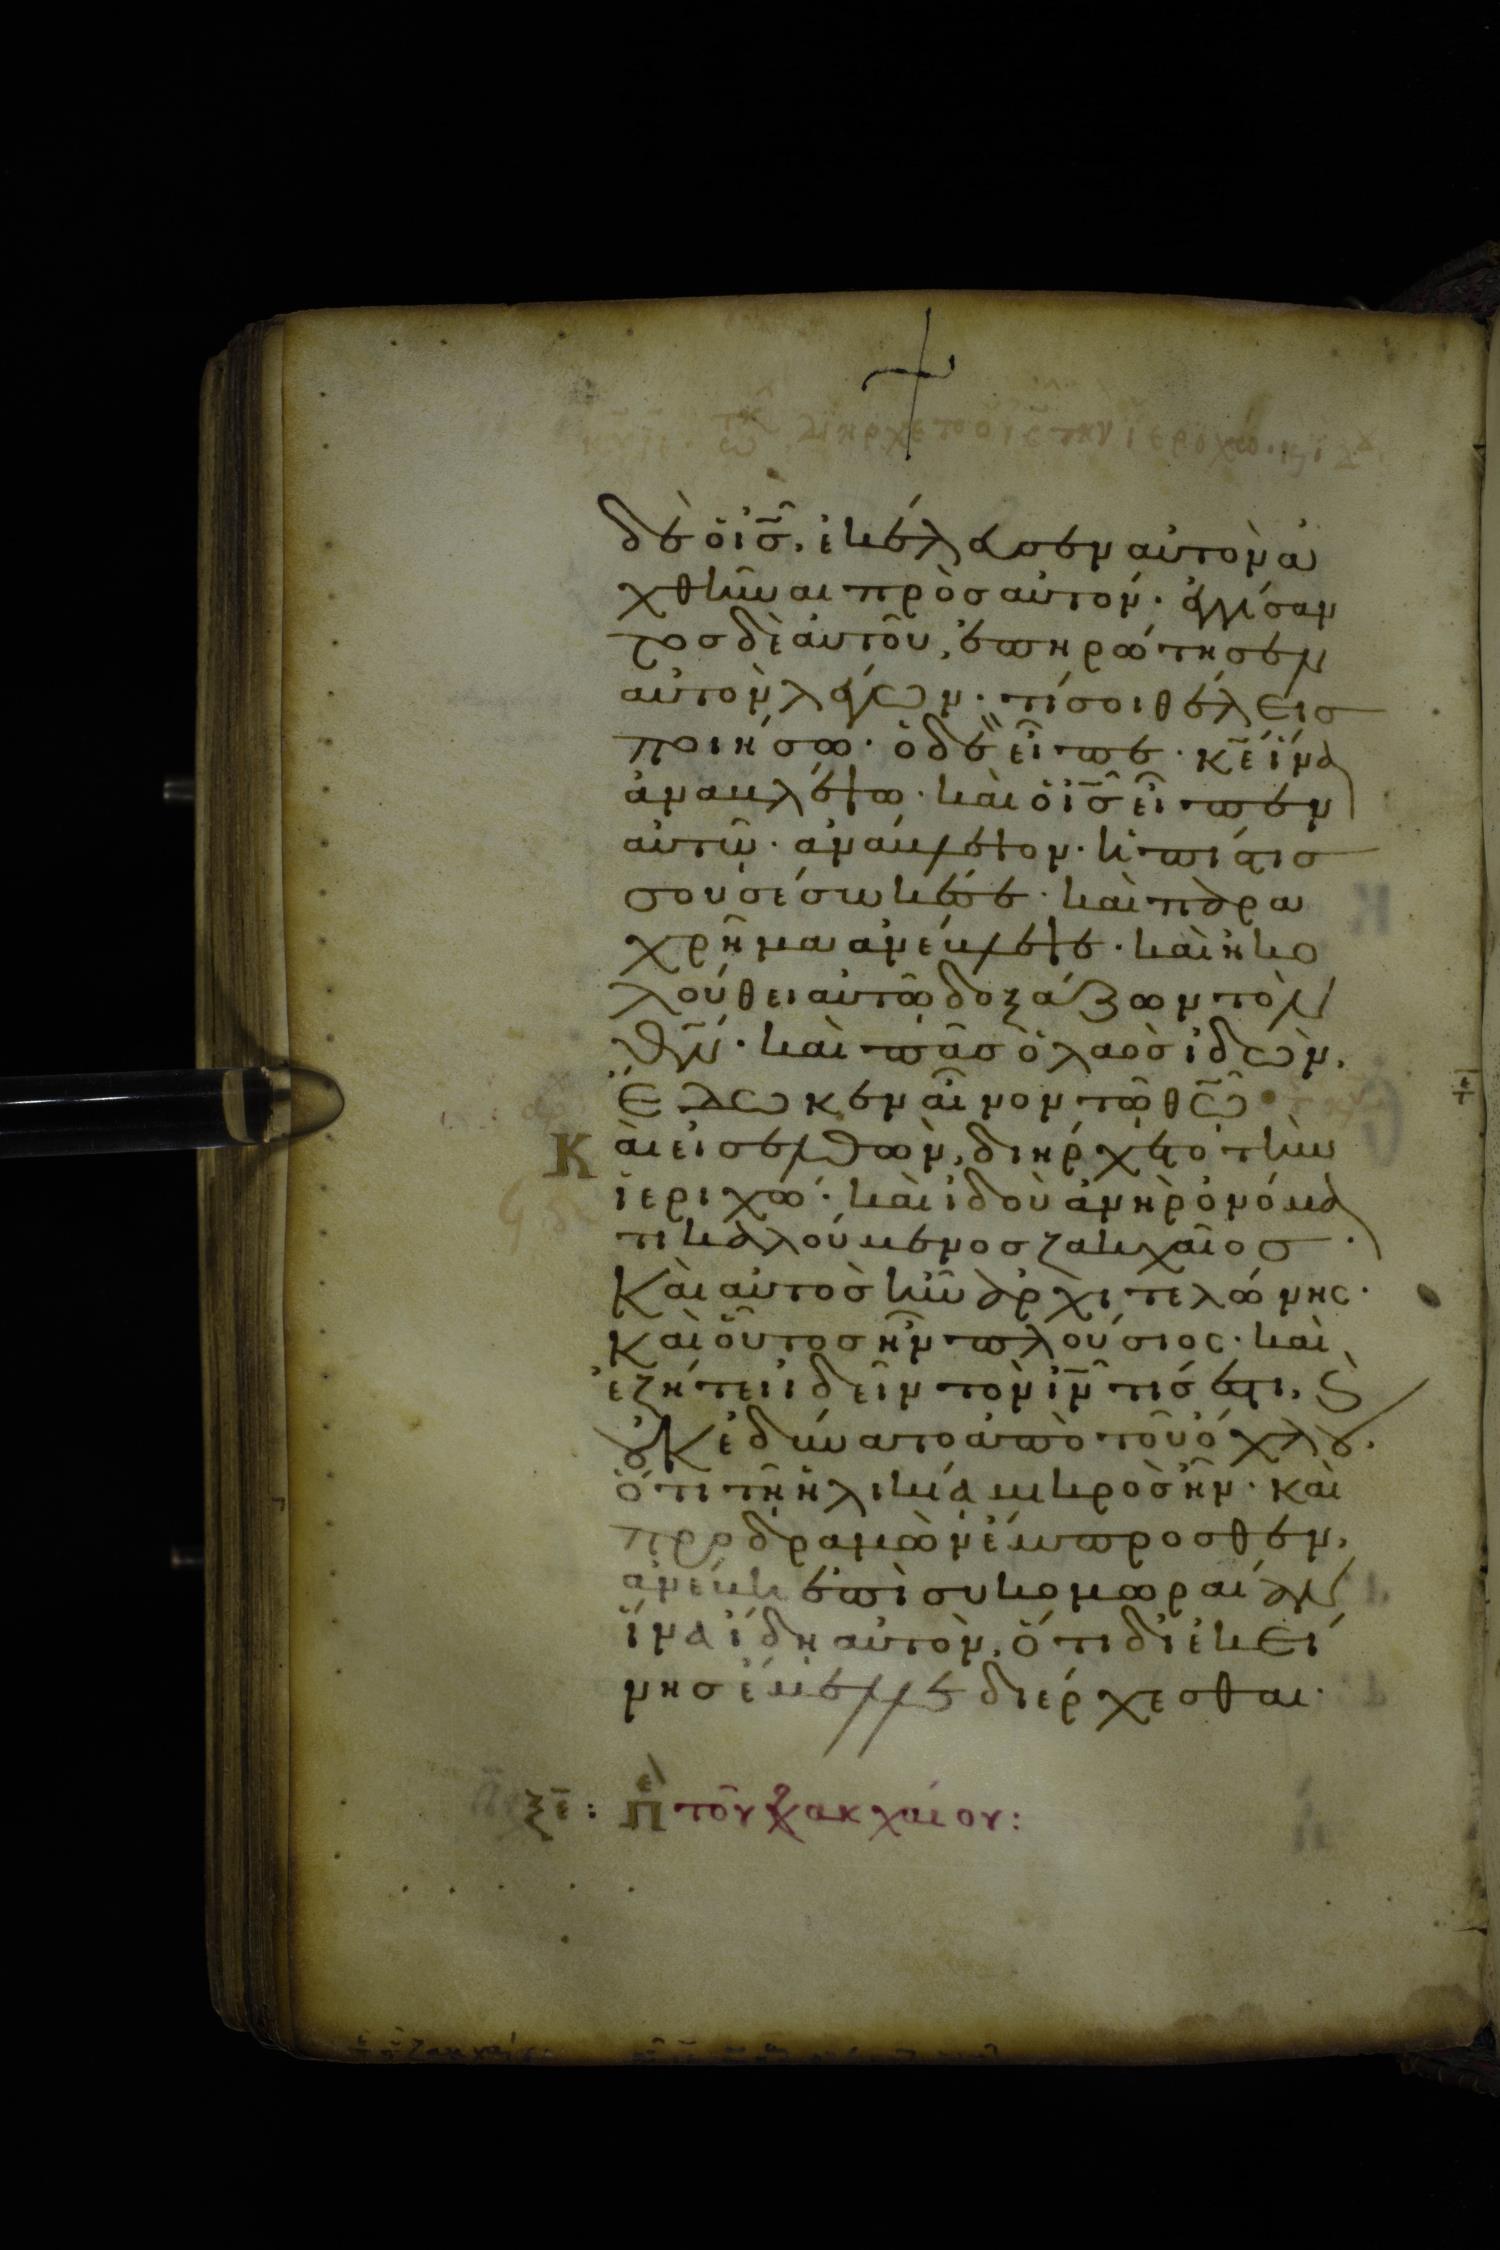 δὲ ὁ ις̅, ἐκέλευσεν αὐτὸν ἀ
χθῆναι πρὸς αὐτόν· ἐγγίσαν
τος δὲ αὐτοῦ, ἐπηρώτησεν
αὐτὸν λέγων· τί σοι θέλεις
ποιήσω· ὁ δὲ εἶπε· κ̅ε̅ ἵνα
ἀναβλέψω· καὶ ὁ ις̅ εἶπεν
αὐτῶ· ἀνάβλεψον· ἡ πίστις
σου σέσωκέ σε· καὶ παρα
χρῆμα ἀνέβλεψε· καὶ ἠκο
λούθει αὐτῶ δοξάζων τὸν
θ̅ν̅· καὶ πᾶς ὁ λαὸς ἰδὼν,
ἔδωκεν αἶνον τῶ θ̅ω̅
Καὶ εἰσελθὼν, διήρχετο τὴν
ἱεριχώ· καὶ ἰδοὺ ἀνὴρ ὀνόμα
τι καλούμενος ζακχαῖος·
Καὶ αὐτὸς ἦν ἀρχιτελώνης·
καὶ οὗτος ἦν πλούσιος· καὶ
ἐζήτει ἰδεῖν τὸν ι̅ν̅ τίς ἐστι, καὶ
οὐκ ἐδύνατο ἀπὸ τοῦ ὄχλου,
ὅτι τῆ ἡλικία μικρὸς ἦν· καὶ
προδραμὼν ἔμπροσθεν,
ἀνέβη ἐπὶ συκομωραίαν
ἵνα ἴδη αὐτὸν, ὅτι δι ἐκεί
νης ἔμελλε διέρχεσθαι·
ξε̅: πε τοῦ ζακχαίου: